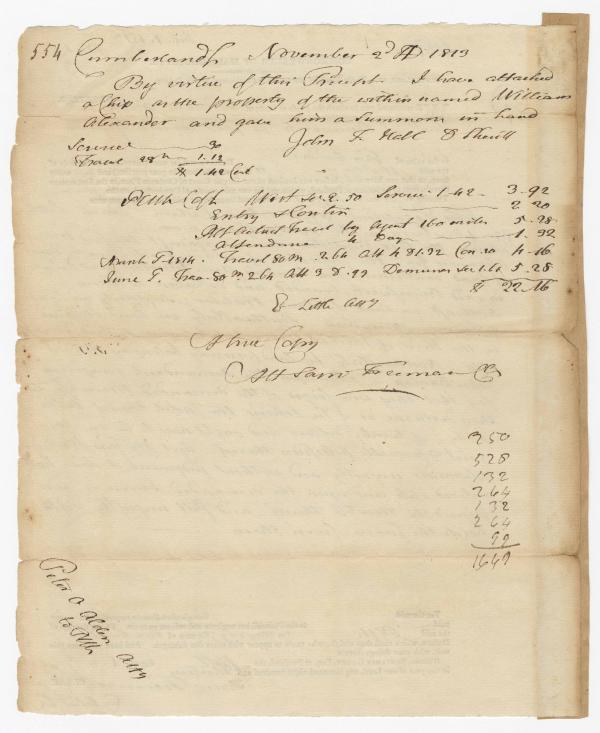 554 Cumberland Ss November 2d AD 1813
By virtue of this Precept I have attached
a Chip as the property of the within named William
Alexander and gave him a Summons in hand
John F. Hall D Sheriff
Service 30
Travel 28 m 1.12
$ 1.42
Plffs Cost Writ &c 2.50 Service 1.42 3.92
Entry & Contin 2.20
Plf Actual Travel by Agent 160 miles 5.28
Attendance 4 Day 1.32
March T 1814. Travel 80 m. 2.64 Att 4 d 1.32 Con 20 4.16
June T. Trav. 80 m 2.64 Att 3 d .99 5.28
$ 22.16
E Little Atty
A true Copy
Att Saml Freeman Clk
250
528
132
264
132
264
99
1669
Peter O Alden Atty
to Plff